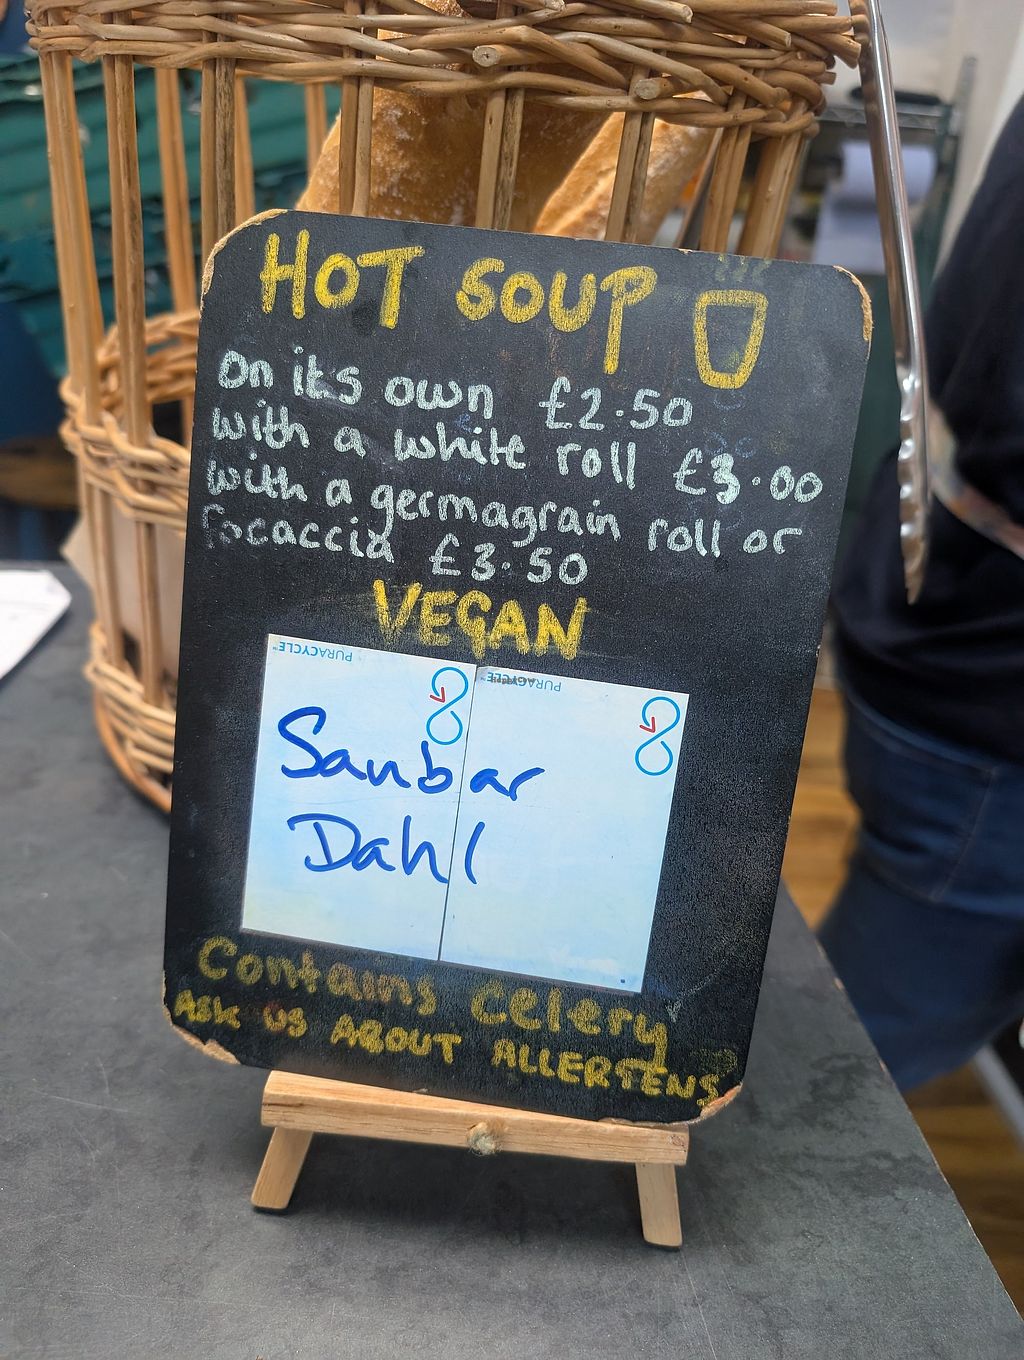 HOT SOUP
On its own £2.50
with a white roll £3.00
with a germagrain roll or
focaccia £3.50
VEGAN
PURACYCLE™
PURACYCLE™
Saubar
Dahl
Contains Celery
ASK US ABOUT ALLERGENS